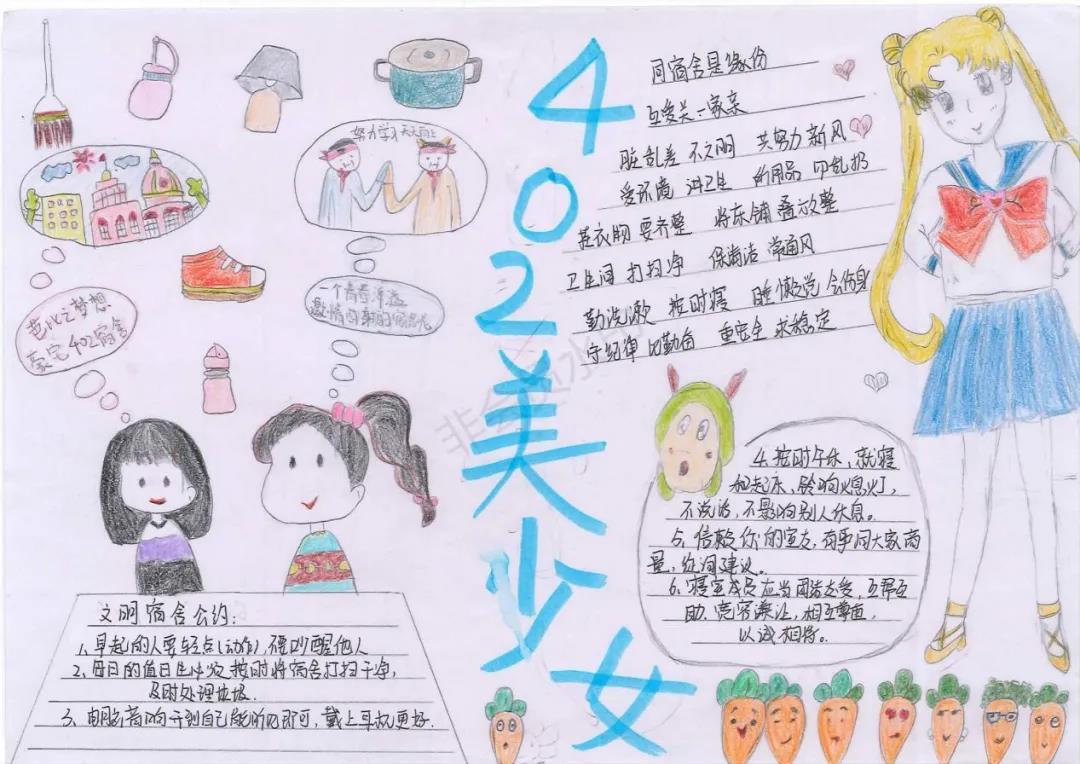 402美少女
努力学习天天向上
芭比之梦想
豪宅402宿舍
一个青春洋溢
同宿舍是缘份
互爱关一家亲
脏乱差 不文明 共努力 新风
爱环境 讲卫生 用品 乱扔
衣物 要齐整 将东铺 叠放整
卫生间 打扫净 保清洁 常通风
勤洗漱 按时寝 睡懒觉 会伤身
守纪律 比勤奋 重安全 求稳定
文明宿舍公约:
1、早起的人要轻点(动作),不要吵醒他人
2、每日的值日生必须按时将宿舍打扫干净,
及时处理垃圾.
3、电脑音响开到自己能听见即可,戴上耳机更好.
4.按时午休、就寝
和起床、铃响熄灯,
不说话,不影响别人休息。
5、信赖你的室友,有事同大家商
量,征询建议。
6、寝室成员应当团结友爱,互帮互
助、宽容谦让,相互尊重,
以诚相待。